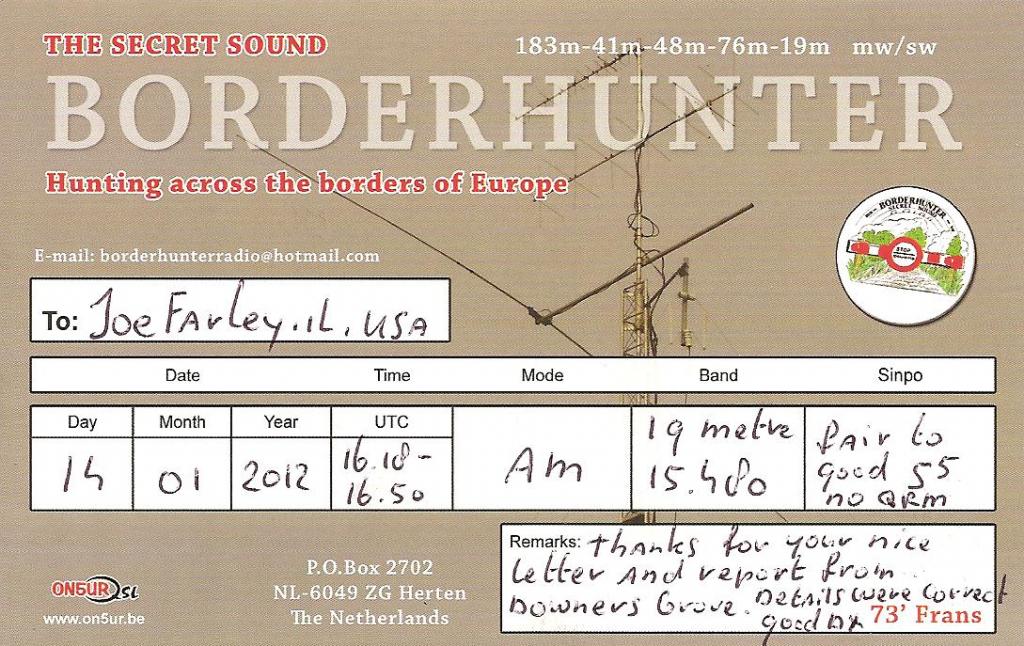 THE SECRET SOUND
183m-41m-48m-76m-19m mw/sw
BORDERHUNTER
Hunting across the borders of Europe
BORDERHUNTER
SECRET SOUND
STOP
E-mail: borderhunterradio@hotmail.com
To: Joe Farley. IL. USA
Date Time Mode Band Sinpo
Day Month Year UTC
14 01 2012
16.18-
16.50
Am
19 metre
15.480
fair to
good 55
no QRM
Remarks: thanks for your nice
letter and report from
Downers Grove. Details were correct
good DX
73' Frans
P.O.Box 2702
NL-6049 ZG Herten
The Netherlands
ON5UR QSL
www.on5ur.be